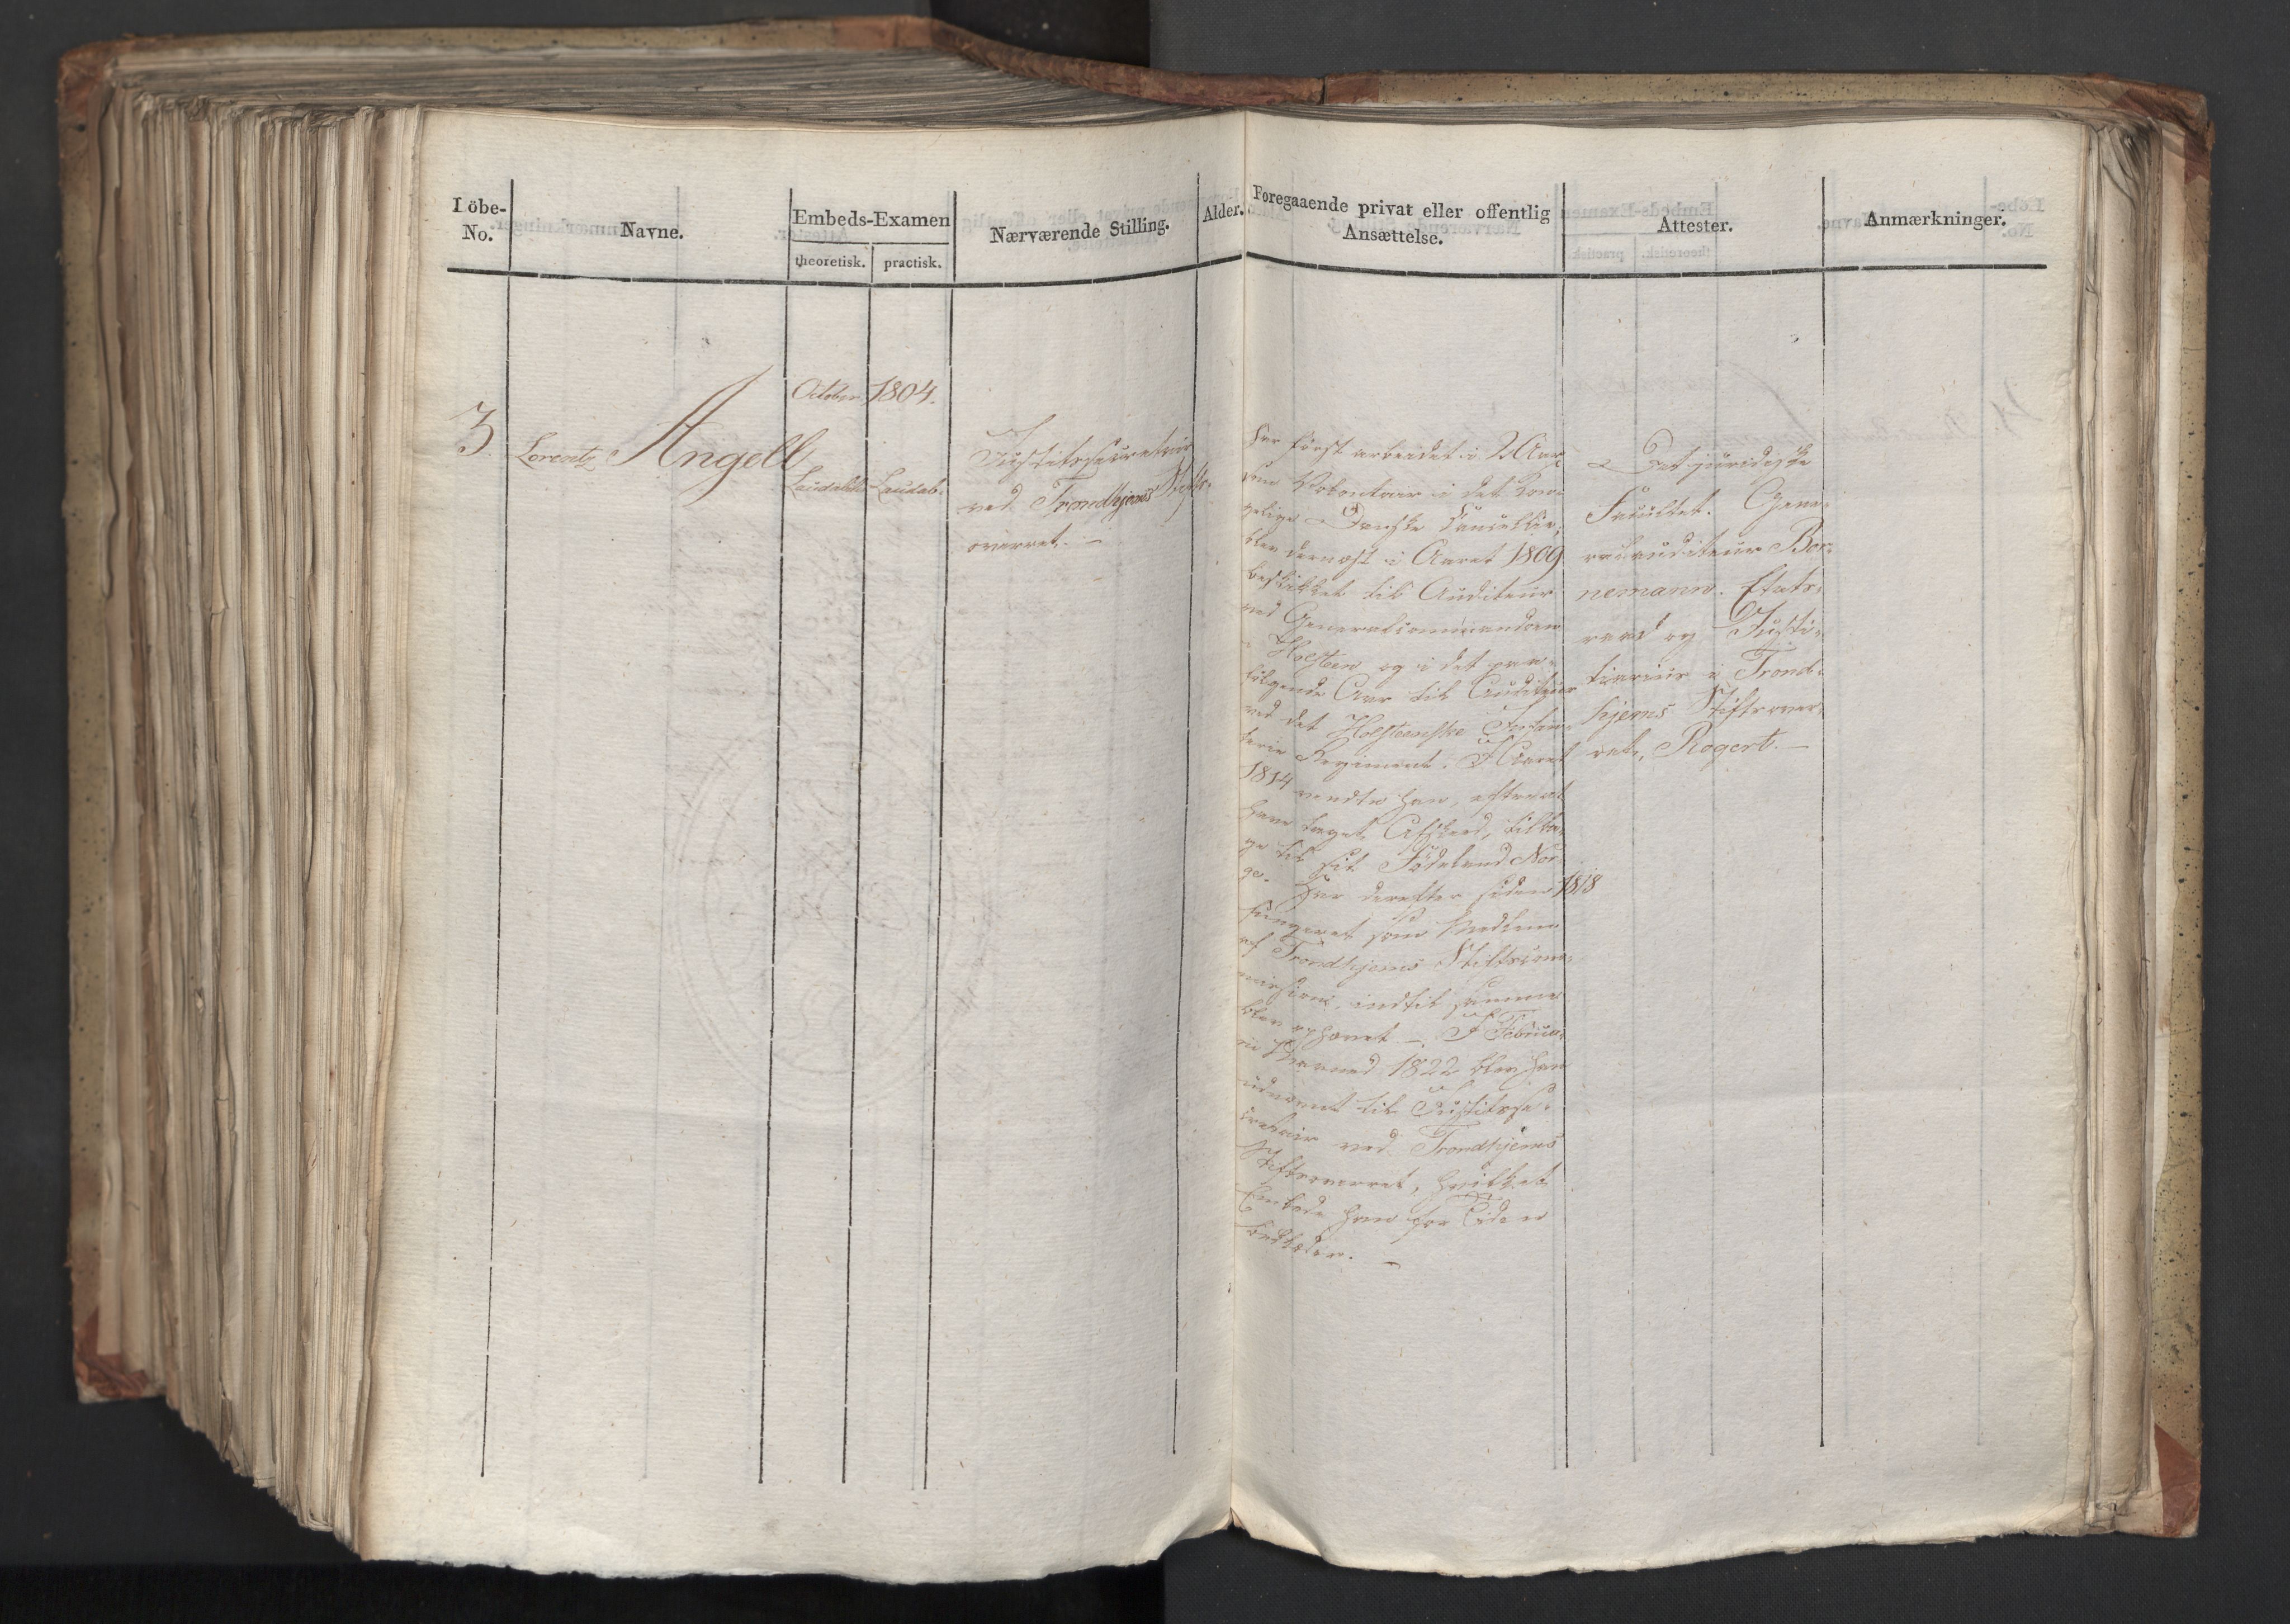 Löbe-
No.
Navne.
Embeds-Examen
theoretisk. practisk.
Nærværende Stilling.
Alder.
Foregaaende privat eller offentlig
Ansættelse.
Attester.
Anmærkninger.
October 1804.
3.
Lorentz Angell
Laudabil. Laudab.
Justitssecretair
ved Trondhjems Stifts-
overret. -
Har først arbeidet i 2 Aar
som Volontair i det kon-
gelige Danske Cancellie,
blev dernæst i Aaret 1809
beskikket til Auditeur
ved Generalcommandoen
i Holsteen og i det paa-
følgende Aar til Auditeur
ved det Holsteenske Infan-
terie Regiment. I Aaret
1814 vendte han, efter at
have taget Afskeed, tilba-
ge til sit Fødeland Nor-
ge. Har derefter siden 1818
fungeret som Medlem
af Trondhjems Stiftscom-
mission, indtil samme
blev ophævet -. I Februa-
rii Maaned 1822 blev han
udnævnt til Justitsse-
cretair ved Trondhjems
Stiftsoverret, hvilket
Embede han for Tiden
beklæder. -
Det juridiske
Facultet. Gene-
ralauditeur Bor-
nemann. Etats-
raad og Justi-
tiarius i Trond-
hjems Stiftsover-
ret, Rogert. -